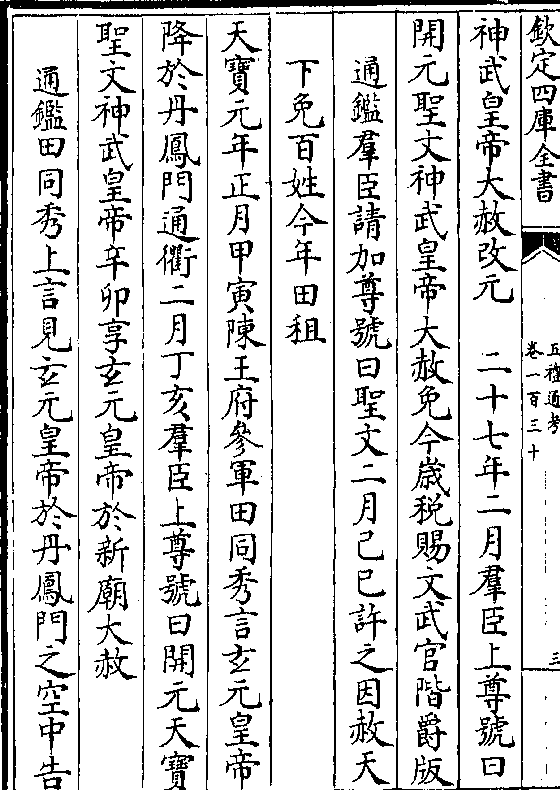 欽定四庫全書
五禮通考
卷一百三十
三
神武皇帝大赦改元　二十七年二月羣臣上尊號曰
開元聖文神武皇帝大赦免今歲稅賜文武官階爵版
通鑑羣臣請加尊號曰聖文二月己巳許之因赦天
下免百姓今年田租
天寶元年正月甲寅陳王府參軍田同秀言玄元皇帝
降於丹鳳門通衢二月丁亥羣臣上尊號曰開元天寶
聖文神武皇帝辛卯享玄元皇帝於新廟大赦
通鑑田同秀上言見玄元皇帝於丹鳳門之空中告